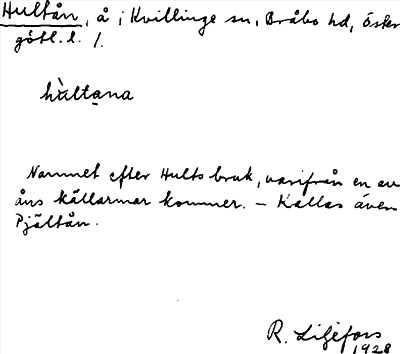 Hultån, å i Kvillinge sn, Bråbo hd, Öster
götl. l. 1.
hùltana
Namnet efter Hults bruk, varifrån en av
åns källarmar kommer. – Kallas även
Pjältån.
R. Liljefors
1928